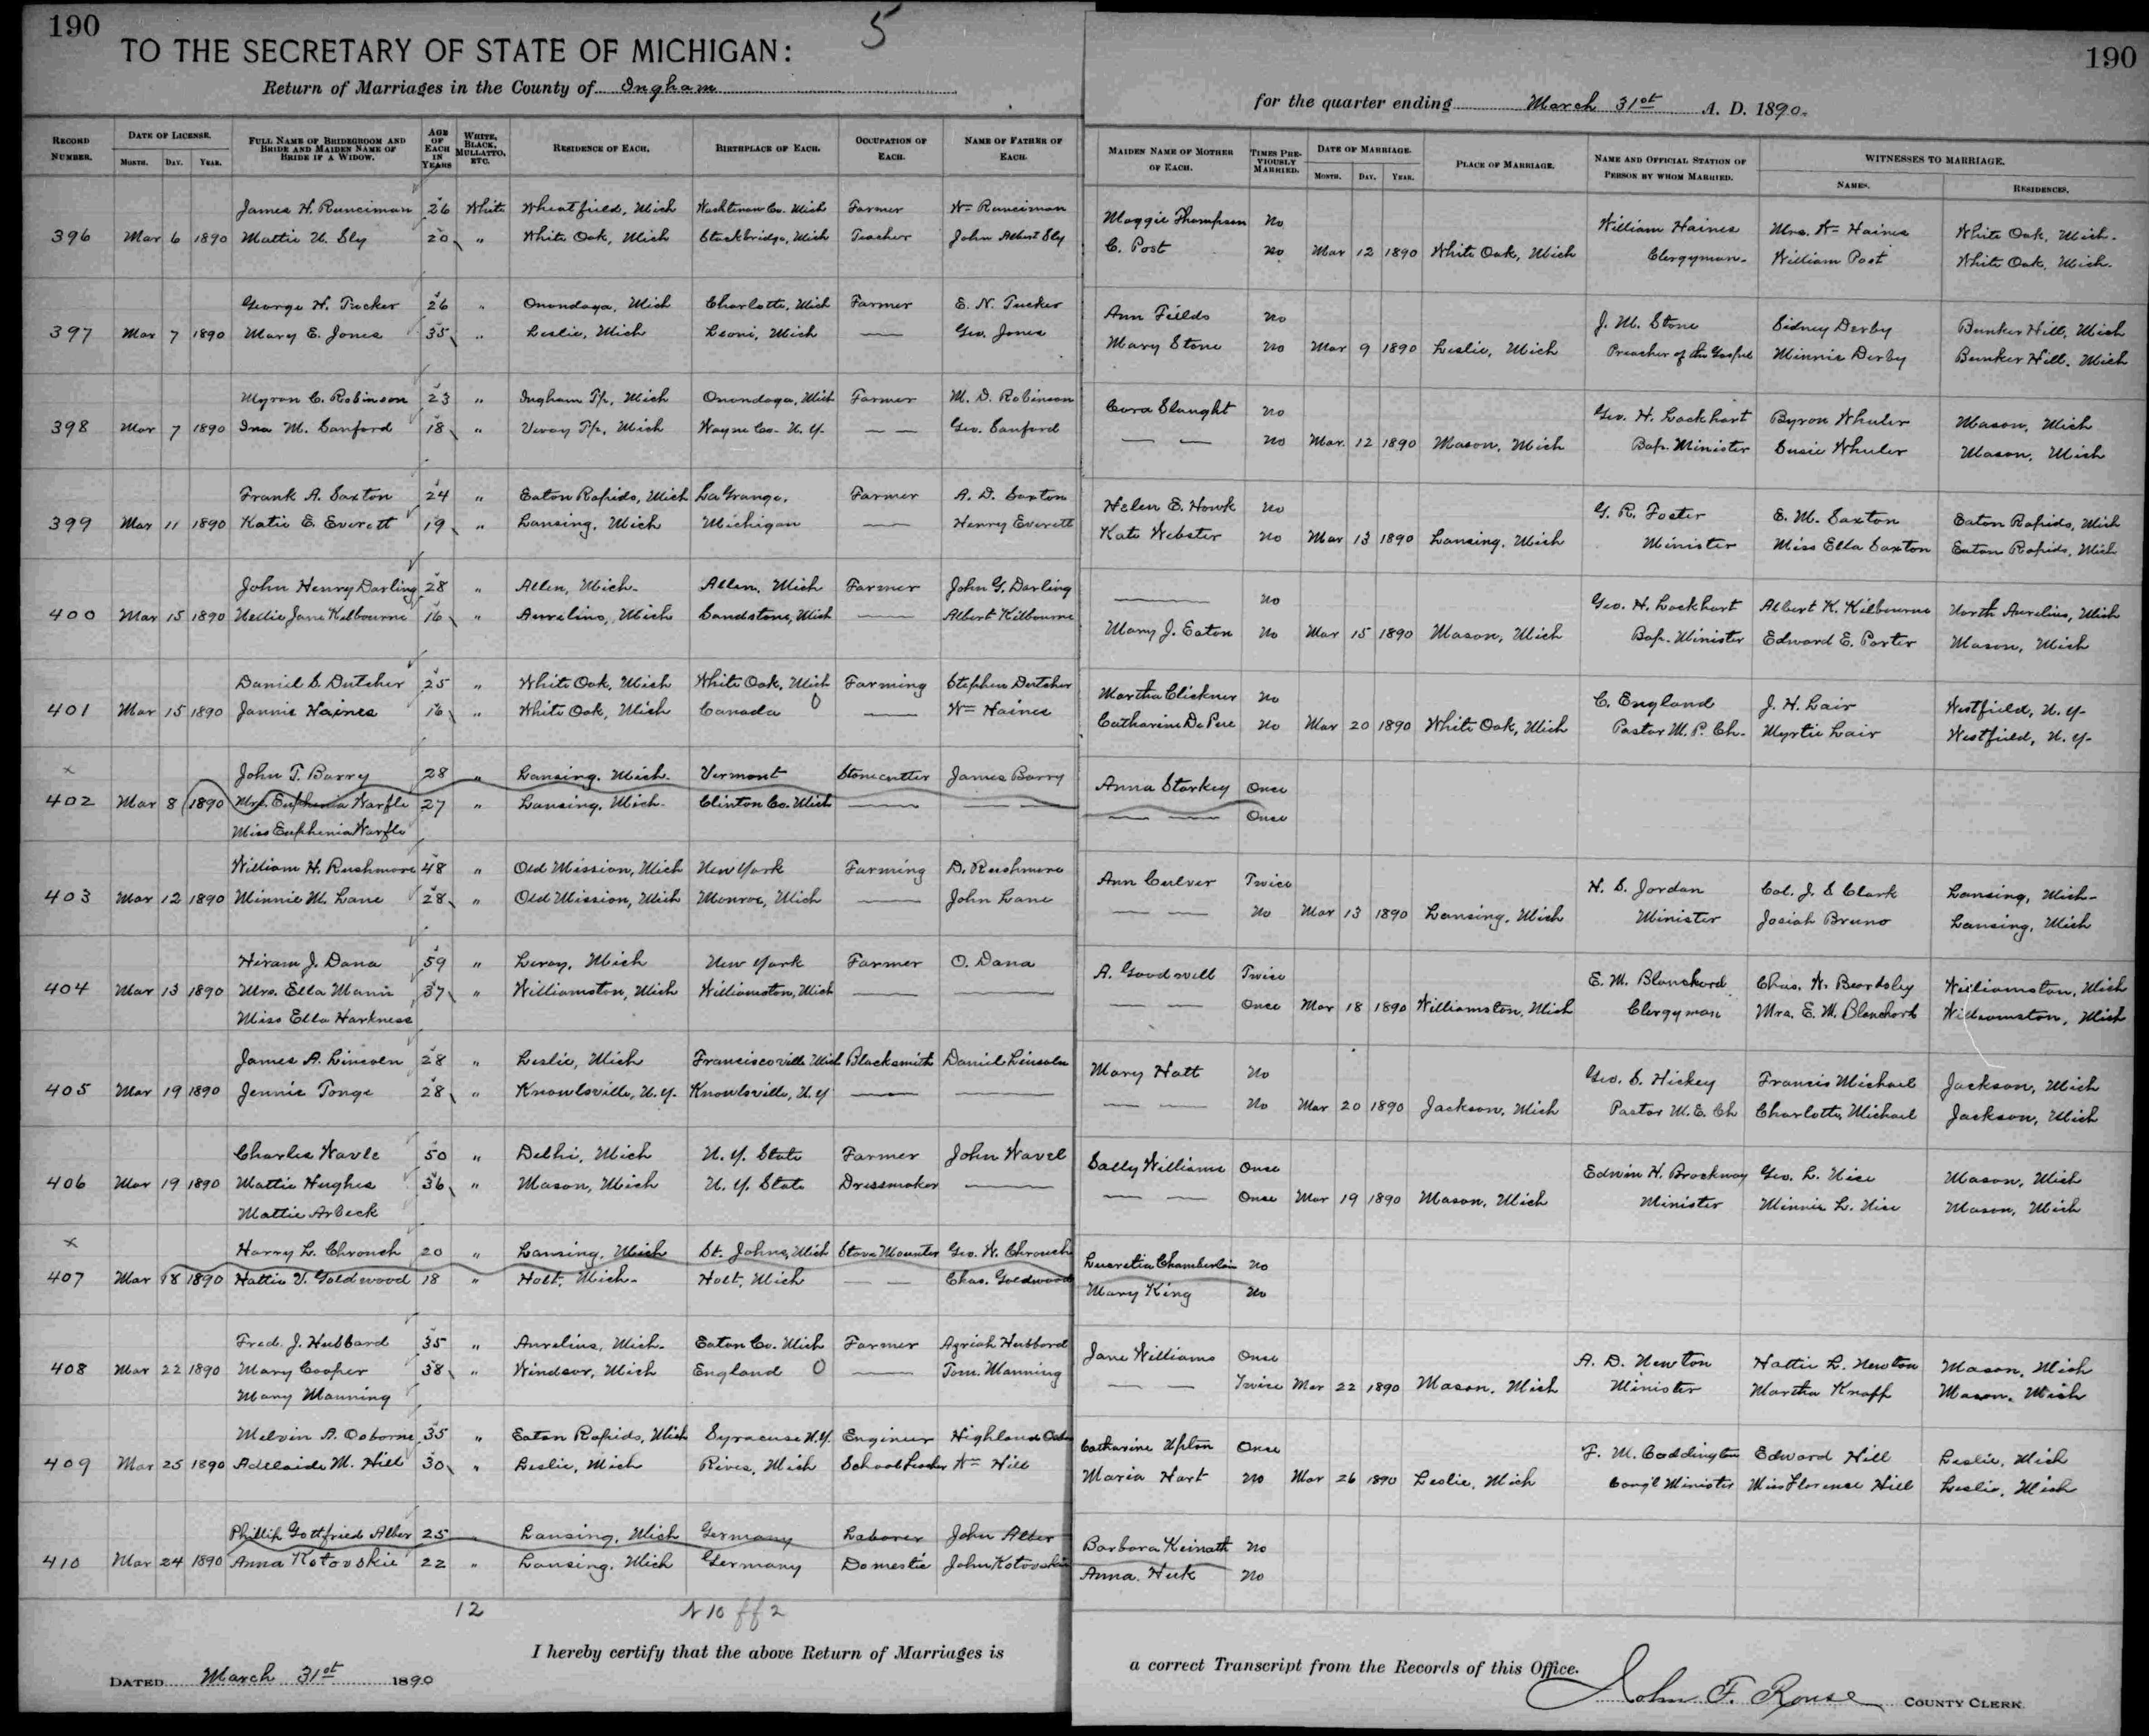 190
5
190
TO THE SECRETARY OF STATE OF MICHIGAN:
Return of Marriages in the County of Ingham for the quarter ending March 31st A. D. 1890.
RECORD NUMBER. DATE OF LICENSE. MONTH. DAY. YEAR. FULL NAME OF BRIDEGROOM AND BRIDE AND MAIDEN NAME OF BRIDE IF A WIDOW. AGE OF EACH IN YEARS WHITE, BLACK, MULLATTO, ETC. RESIDENCE OF EACH. BIRTHPLACE OF EACH. OCCUPATION OF EACH. NAME OF FATHER OF EACH. MAIDEN NAME OF MOTHER OF EACH. TIMES PREVIOUSLY MARRIED. DATE OF MARRIAGE. MONTH. DAY. YEAR. PLACE OF MARRIAGE. NAME AND OFFICIAL STATION OF PERSON BY WHOM MARRIED. WITNESSES TO MARRIAGE. NAMES. RESIDENCES.
James H. Runciman 26 White Wheatfield, Mich Washtenaw Co. Mich Farmer Wm Runciman Maggie Thompson No William Haines Mrs. Wm Haines White Oak, Mich.
396 Mar 6 1890 Mattie U. Sly 20 " White Oak, Mich Stockbridge, Mich Teacher John Albert Sly C. Post No Mar 12 1890 White Oak, Mich Clergyman. William Post White Oak, Mich.
George H. Tucker 26 " Onondaga, Mich Charlotte, Mich Farmer E. N. Tucker Ann Fields No J. M. Stone Sidney Derby Bunker Hill, Mich
397 Mar 7 1890 Mary E. Jones 35 " Leslie, Mich Leoni, Mich —— Geo. Jones Mary Stone No Mar 9 1890 Leslie, Mich Preacher of the Gospel Minnie Derby Bunker Hill. Mich
Myron C. Robinson 23 " Ingham Tp, Mich Onondaga, Mich Farmer M. D. Robinson Cora Slaught No Geo. H. Lockhart Byron Wheeler Mason, Mich
398 Mar 7 1890 Ina M. Sanford 18 " Vevay Tp, Mich Wayne Co. N. Y. — — Geo. Sanford — — No Mar. 12 1890 Mason, Mich Bap. Minister Susie Wheeler Mason, Mich
Frank A. Saxton 24 " Eaton Rapids, Mich LaGrange, Farmer A. D. Saxton Helen E. Howk No G. R. Foster E. M. Saxton Eaton Rapids, Mich
399 Mar 11 1890 Katie E. Everett 19 " Lansing, Mich Michigan —— Henry Everett Kate Webster No Mar 13 1890 Lansing, Mich Minister Miss Ella Saxton Eaton Rapids, Mich
John Henry Darling 28 " Allen, Mich. Allen, Mich Farmer John G. Darling —— No Geo. H. Lockhart Albert K. Kilbourne North Aurelius, Mich
400 Mar 15 1890 Nellie Jane Kilbourne 16 " Aurelius, Mich Sandstone, Mich —— Albert Kilbourne Mary J. Eaton No Mar 15 1890 Mason, Mich Bap. Minister Edward E. Porter Mason, Mich
Daniel S. Dutcher 25 " White Oak, Mich White Oak, Mich Farming Stephen Dutcher Martha Clickner No C. England J. H. Lair Westfield, N. Y.
401 Mar 15 1890 Jannie Haines 16 " White Oak, Mich Canada 0 —— Wm Haines Catharine DePue No Mar 20 1890 White Oak, Mich Pastor M. P. Ch. Myrtie Lair Westfield, N. Y.
x John T. Barry 28 " Lansing, Mich. Vermont Stonecutter James Barry Anna Starkey Once
402 Mar 8 1890 Mrs. Euphenia Warfle 27 " Lansing, Mich. Clinton Co. Mich —— — — — — Once
Miss Euphenia Warfle
William H. Rushmore 48 " Old Mission, Mich New York Farming D. Rushmore Ann Culver Twice H. S. Jordan Col. J. S Clark Lansing, Mich.
403 Mar 12 1890 Minnie M. Lane 28 " Old Mission, Mich Monroe, Mich —— John Lane — — No Mar 13 1890 Lansing, Mich Minister Josiah Bruno Lansing, Mich
Hiram J. Dana 59 " Leroy, Mich New York Farmer O. Dana A. Goodwell Twice E. M. Blanchard Chas. W. Beardsley Williamston, Mich
404 Mar 13 1890 Mrs. Ella Mann 37 " Williamston, Mich Williamston, Mich —— —— — — Once Mar 18 1890 Williamston, Mich Clergyman Mrs. E. M. Blanchard Williamston, Mich
Miss Ella Harkness
James A. Lincoln 28 " Leslie, Mich Franciscoville Mich Blacksmith Daniel Lincoln Mary Hatt No Geo. S. Hickey Francis Michael Jackson, Mich
405 Mar 19 1890 Jennie Tonge 28 " Knowlsville, N. Y. Knowlsville, N. Y —— —— — — No Mar 20 1890 Jackson, Mich Pastor M. E. Ch Charlotte Michael Jackson, Mich
Charles Wavle 50 " Delhi, Mich N. Y. State Farmer John Wavel Sally Williams Once Edwin H. Brockway Geo. L. Nice Mason, Mich
406 Mar 19 1890 Mattie Hughes 36 " Mason, Mich N. Y. State Dressmaker —— — — Once Mar 19 1890 Mason, Mich Minister Minnie L. Nice Mason, Mich
Mattie Arbeck
x Harry L. Chrouch 20 " Lansing, Mich St. Johns, Mich Stove Mounter Geo. W. Chrouch Lucretia Chamberlin No
407 Mar 18 1890 Hattie V. Goldwood 18 " Holt, Mich. Holt, Mich — — Chas. Goldwood Mary King No
Fred. J. Hubbard 35 " Aurelius, Mich. Eaton Co. Mich Farmer Azriah Hubbard Jane Williams Once A. D. Newton Hattie L. Newton Mason, Mich
408 Mar 22 1890 Mary Cooper 38 " Windsor, Mich England 0 —— Tom. Manning — — Twice Mar 22 1890 Mason, Mich Minister Martha Knapp Mason, Mich
Mary Manning
Melvin A. Osborne 35 " Eaton Rapids, Mich Syracuse N.Y. Engineer Highland Catharine Upton Once F. M. Coddington Edward Hill Leslie, Mich
409 Mar 25 1890 Adelaide M. Hill 30 " Leslie, Mich Rives, Mich School teacher Wm Hill Maria Hart No Mar 26 1890 Leslie, Mich Cong'l Minister Miss Florence Hill Leslie, Mich
Phillip Gottfried Alber 25 " Lansing, Mich Germany Laborer John Alber Barbara Keinath No
410 Mar 24 1890 Anna Kotovskie 22 " Lansing, Mich Germany Domestic John Kotovskie Anna. Huk No
12 N 10 ff 2
I hereby certify that the above Return of Marriages is a correct Transcript from the Records of this Office.
DATED March 31st 1890
John F. Rouse COUNTY CLERK